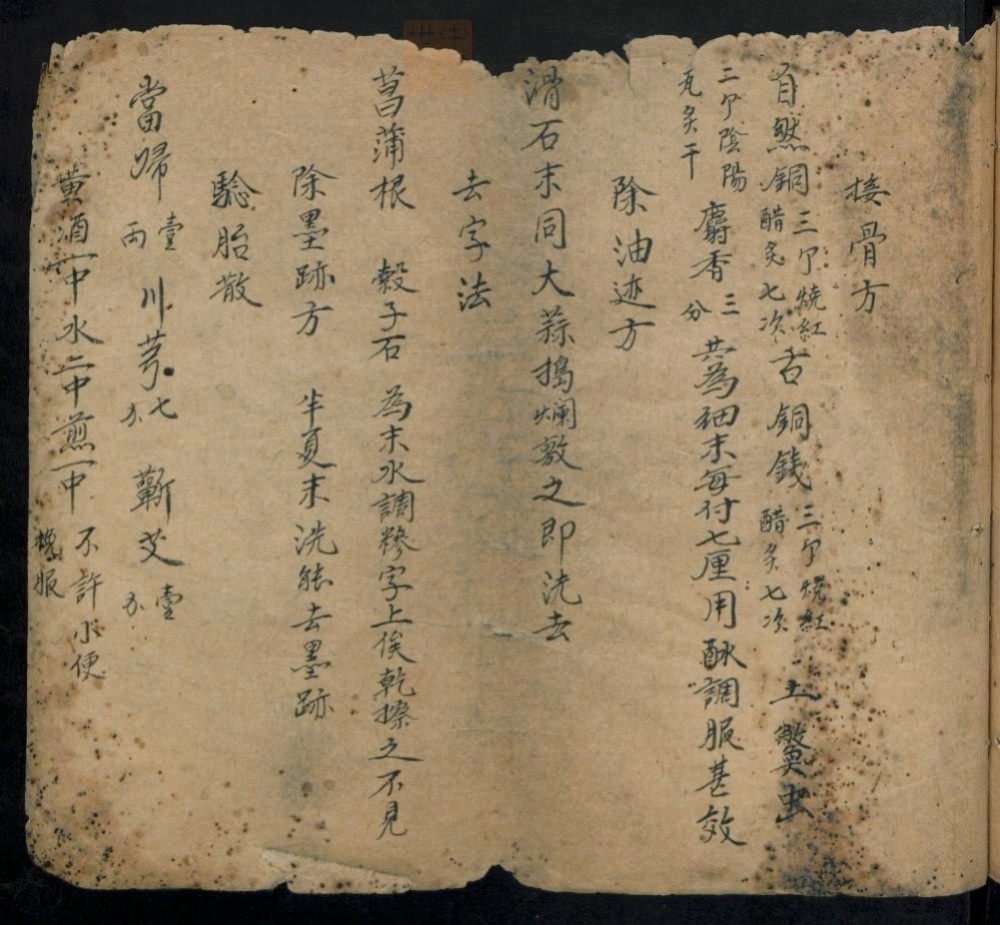 接骨方
自然銅三卩燒紅醋炙七次古銅錢三卩燒紅醋炙七次土鱉虫
二卩陰陽瓦炙干麝香三分共為細末每付七厘用酥調服甚效
除油迹方
滑石末同大蒜搗爛敷之即洗去
去字法
菖蒲根 穀子石為末水調糝字上俟乾擦之不見
除墨跡方 半夏末洗能去墨跡
驗胎散
當歸壹兩川芎七分蘄艾壹分
黃酒一中水二中煎一中不許小便晚服